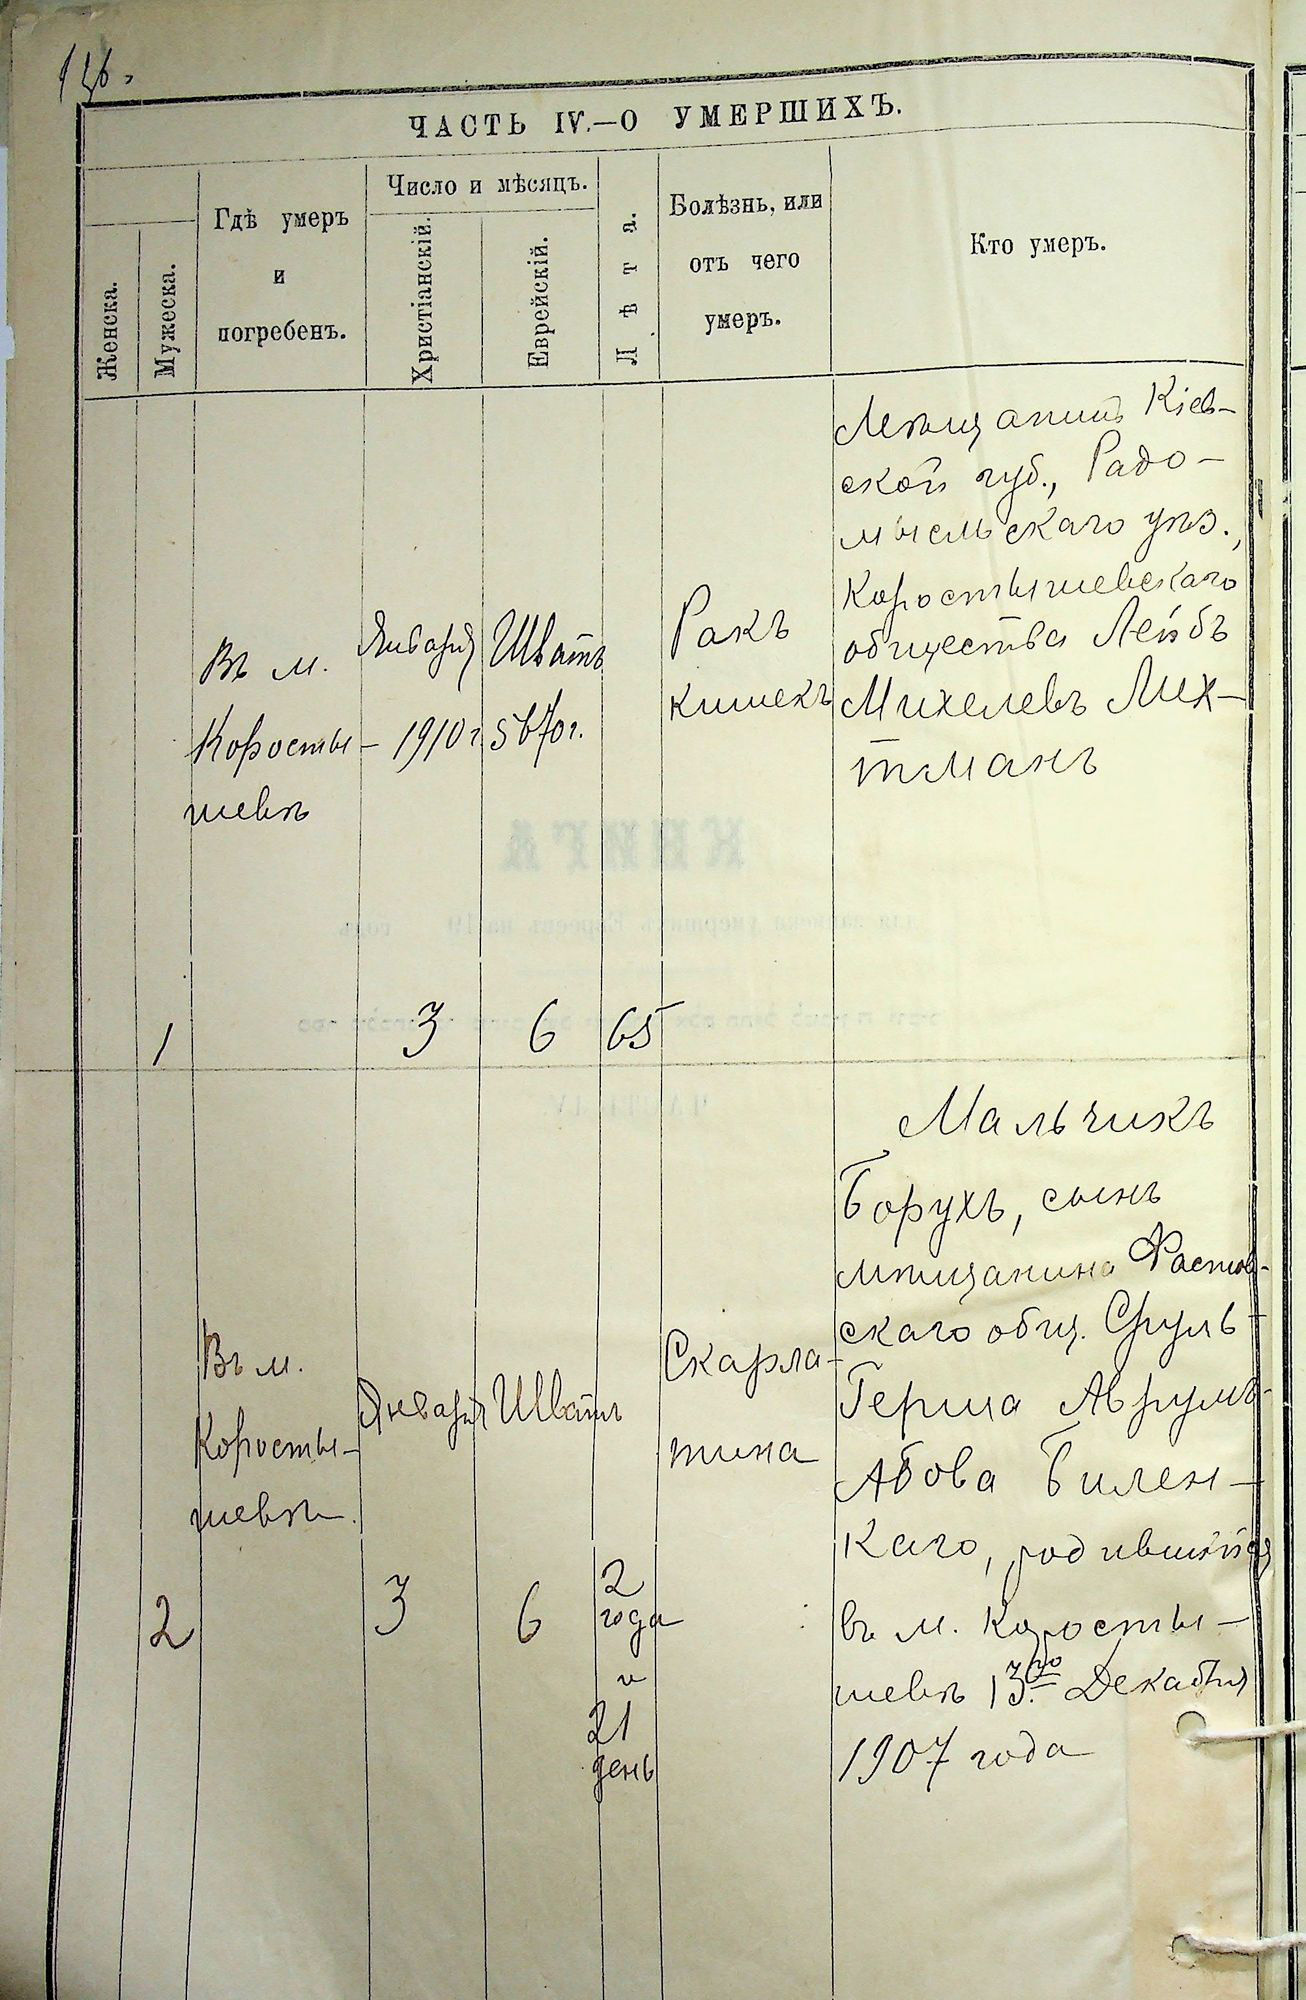 ЧАСТЬ IV.—О УМЕРШИХЪ.
Женска.
Мужеска.
Гдѣ умеръ
и
погребенъ.
Число и мѣсяцъ.
Христіанскій.
Еврейскій.
Лѣта.
Болѣзнь, или
отъ чего
умеръ.
Кто умеръ.
1
Въ м.
Коросты-
шевѣ
Января
1910 г.
3
Шватъ
5670 г.
6
65
Ракъ
кишекъ
Мѣщанинъ Кіев-
ской губ., Радо-
мысльскаго уѣз.,
Коростышевскаго
общества Лейбъ
Михелевъ Лих-
тманъ
2
Въ м.
Коросты-
шевѣ.
Января
3
Шватъ
6
2
года
и
21
день
Скарла-
тина
Мальчикъ
Борухъ, сынъ
мѣщанина Фастов-
скаго общ. Сруль-
Герша Аврумъ-
Абова Билен-
каго, родившійся
въ м. Коросты-
шевѣ 13го Декабря
1907 года
КНИГА
для записки умершихъ Евреевъ на 19 годъ.
ЧАСТЬ IV.